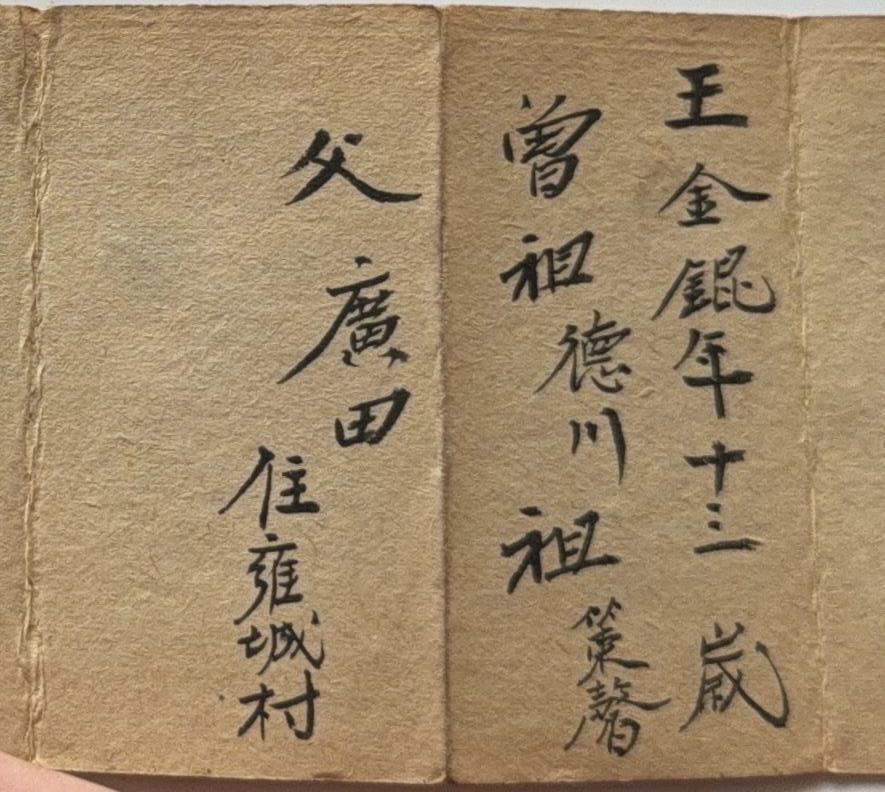 王金錕年十三歲
曾祖德川祖策馨
父廣田
住雍城村